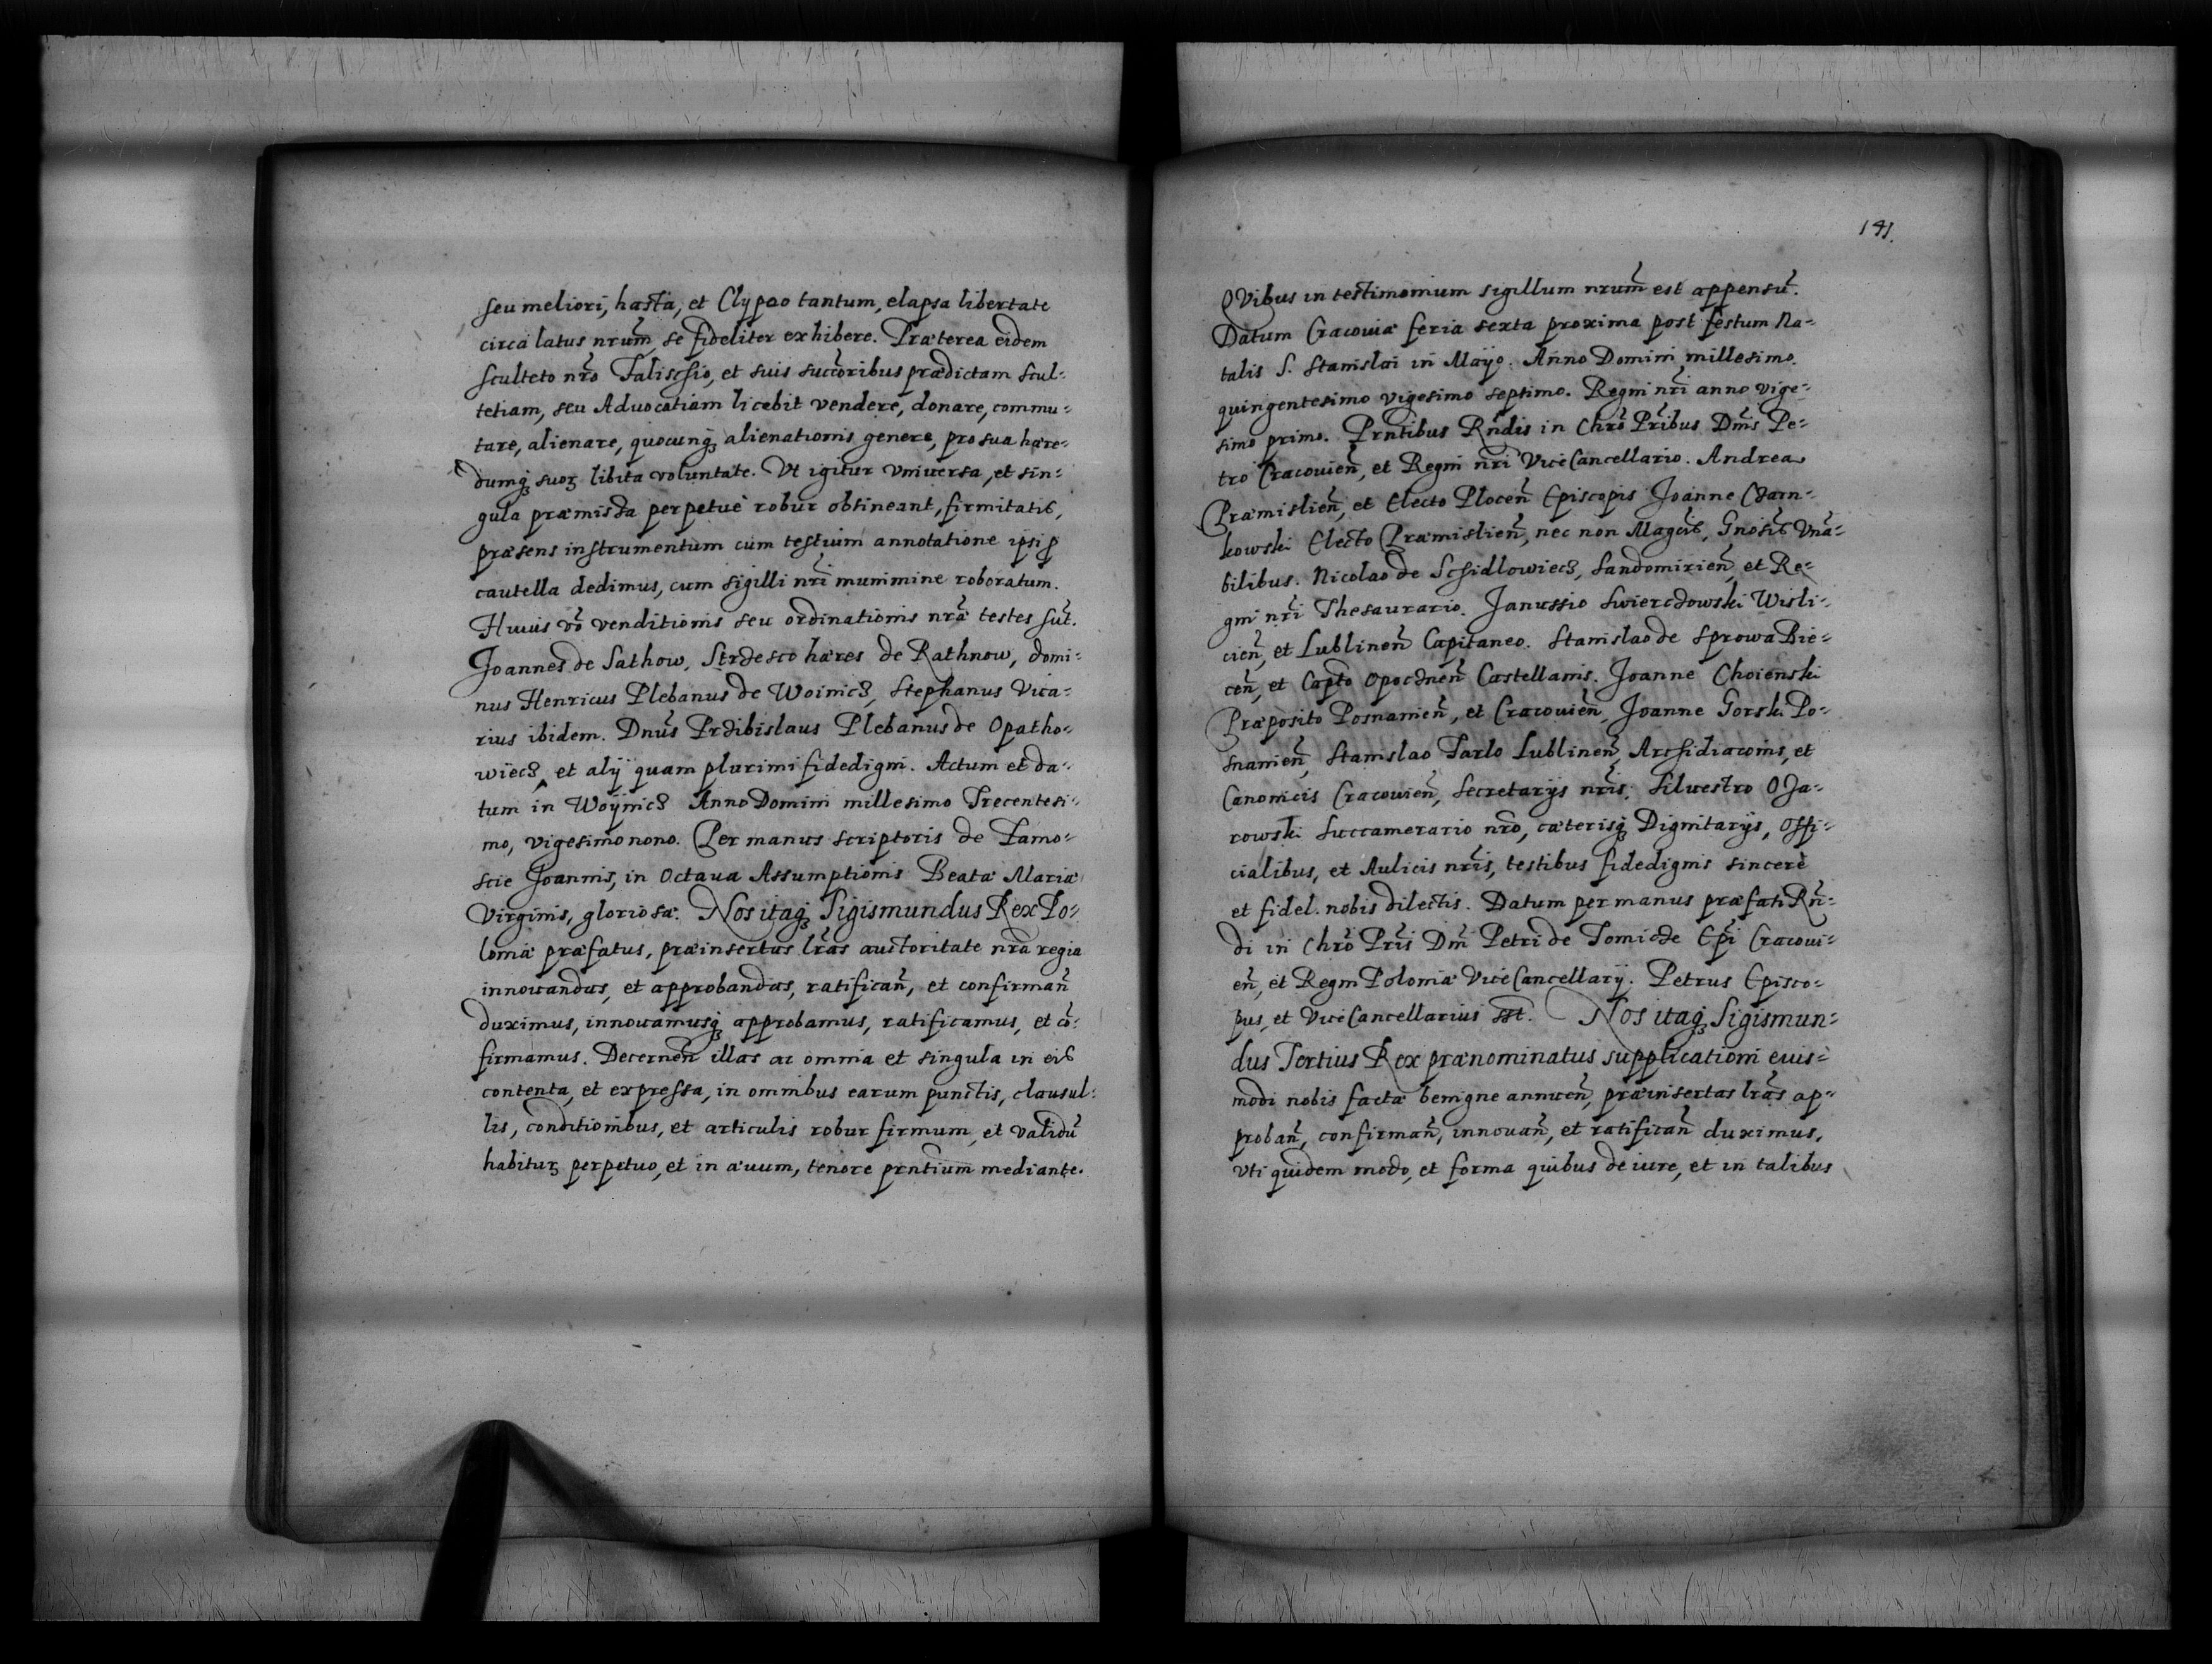 seu meliori, hasta, et Clypeo tantum, elapsa libertate
circa latus nrum̃, se fideliter exhibere. Præterea eidem
sculteto nr̃o Falischio, et suis succ̃oribus prædictam scul-
tetiam, seu Aduocatiam licebit vendere, donare, commu-
tare, alienare, quocunqꝫ alienationis genere, pro sua hære-
dumqꝫ suoꝝ libita voluntate. Vt igitur vniuersa, et sin-
gula præmissa perpetuè robur obtineant, firmitatis,
præsens instrumentum cum testium annotatione ipsi ꝓ
cautella dedimus, cum sigilli nr̃i munimine roboratum.
Huius vo᷉ venditionis seu ordinationis nræ̃ testes sũt.
Joannes de Sathow, Strzesco hæres de Rathnow, domi-
nus Henricus Plebanus de Woinicz, Stephanus Vica-
rius ibidem. Dnus̃ Przibislaus Plebanus de Opatho-
wiecz, et alÿ quam plurimi fidedigni. Actum et da-
tum in Woÿnicz Anno Domini millesimo Trecentesi-
mo, vigesimo nono. Per manus scriptoris de Tamo-
scie Joannis, in Octaua Assumptionis Beatæ Mariæ
Virginis, gloriosæ. Nos itaqꝫ Sigismundus Rex Po-
loniæ præfatus, præinsertas lr̃as auctoritate nr̃a regia
innouandas, et approbandas, ratifican̄, et confirman̄
duximus, innouamusqꝫ approbamus, ratificamus, et cõ-
firmamus. Decernen̄ illas ac omnia et singula in eis
contenta, et expressa, in omnibus earum punctis, clausul-
lis, conditionibus, et articulis robur firmum, et validũ
habituꝝ perpetuo, et in æuum, tenore prñtium mediante.
141.
QVibus in testimonium sigillum nrum̃ est appensũ.
Datum Cracouiæ feria sexta proxima post festum Na-
talis S. Stanislai in Mayo. Anno Domini millesimo
quingentesimo vigesimo septimo. Regni nr̃i anno vige-
simo primo. Prñtibus Rñdis in Chr̃o Pr̃ibus Dñis Pe-
tro Cracouien̄, et Regni nr̃i ViceCancellario. Andrea
Præmislien̄, et Electo Plocen̄ Episcopis Joanne Charn-
kowski Electo Præmislien̄, nec non Magc̃is, Gnosis̃ Vnã-
bilibus. Nicolao de Schidlowiecz, Sandomirien̄, et Re-
gni nr̃i Thesaurario. Janussio Swierczowski Wisli-
cien̄, et Lublinen̄ Capitaneo. Stanislao de Sprowa Bie-
cen̄, et Capt̃o Opocznen̄ Castellanis. Joanne Choienski
Præposito Posnanien̄, et Cracouien̄, Joanne Gorski Po-
snanien̄, Stanislao Tarlo Lublinen̄, Archidiaconis, et
Canonicis Cracouien̄, Secretarÿs nr̃is. Siluestro Oza-
rowski Succamerario nr̃o, cæterisqꝫ Dignitarÿs, Offi-
cialibus, et Aulicis nr̃is, testibus fidedignis sincerè
et fidel. nobis dilectis. Datum per manus præfati Rñ-
di in Chr̃o Pr̃is Dñi Petri de Tomicze Ep̃i Cracoui-
en̄, et Regni Poloniæ ViceCancellarÿ. Petrus Episco-
pus, et ViceCancellarius sst. Nos itaqꝫ Sigismun-
dus Tertius Rex prænominatus supplicationi euis-
modi nobis factæ benigne annuen̄, præinsertas lr̃as ap-
proban̄, confirman̄, innouan̄, et ratifican̄ duximus,
vti quidem modo, et forma quibus de iure, et in talibus